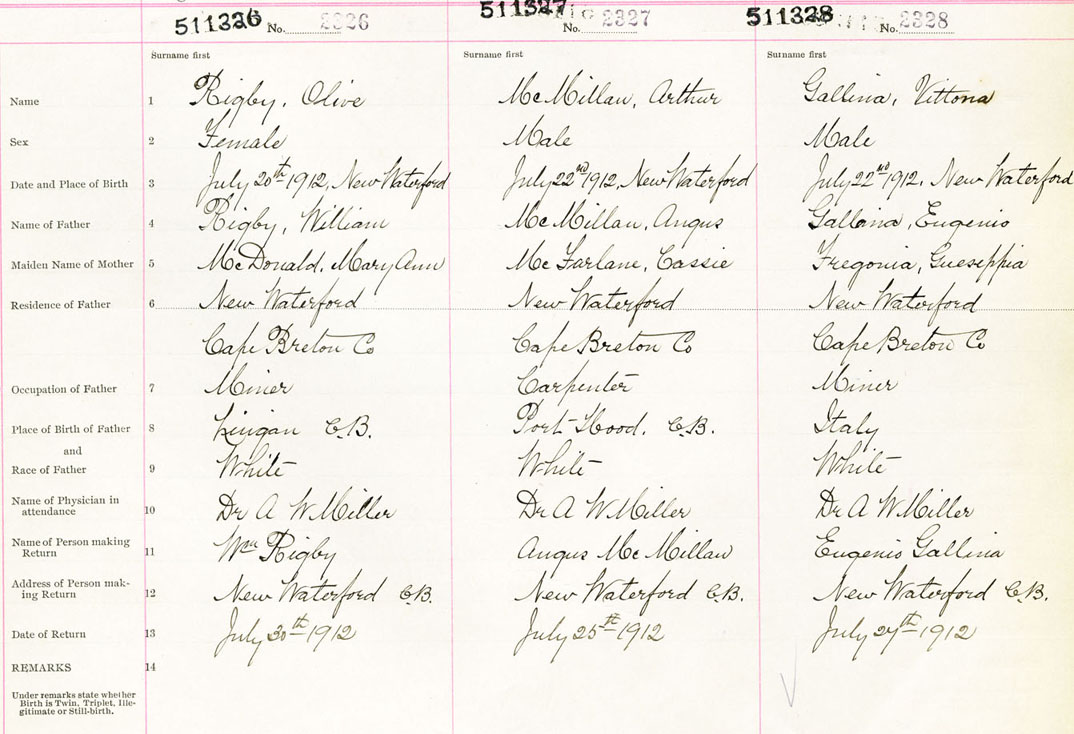 511326 No. 2326 511327 No. 2327 511328 No. 2328
Surname first Surname first Surname first
Name 1 Rigby, Olive McMillan, Arthur Gallina, Vittona
Sex 2 Female Male Male
Date and Place of Birth 3 July 20th 1912, New Waterford July 22nd 1912, New Waterford July 22nd 1912, New Waterford
Name of Father 4 Rigby, William McMillan, Angus Gallina, Eugenio
Maiden Name of Mother 5 McDonald, Mary Ann McFarlane, Cassie Fregonia, Gueseppia
Residence of Father 6 New Waterford New Waterford New Waterford
Cape Breton Co Cape Breton Co Cape Breton Co
Occupation of Father 7 Miner Carpenter Miner
Place of Birth of Father 8 Lingan C.B. Port Hood, C.B. Italy
and
Race of Father 9 White White White
Name of Physician in
attendance 10 Dr A W Miller Dr A W Miller Dr A W Miller
Name of Person making
Return 11 Wm Rigby Angus McMillan Eugenio Gallina
Address of Person mak-
ing Return 12 New Waterford C.B. New Waterford C.B. New Waterford C.B.
Date of Return 13 July 30th 1912 July 25th 1912 July 27th 1912
REMARKS 14
Under remarks state whether
Birth is Twin, Triplet, Ille-
gitimate or Still-birth.